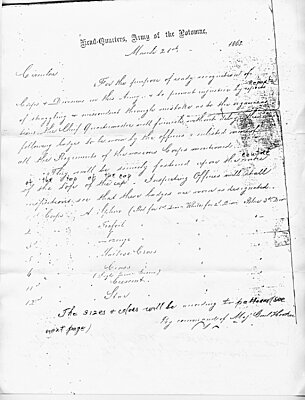 Head-Quarters, Army of the Potomac,
March 21st, 1863
Circular
For the purpose of ready recognition of
Corps & Divisions in this Army, & to prevent injustice by reports
of straggling & misconduct through mistake as to the organization
the Chief Quartermaster will furnish without delay the
following badges to be worn by the officers & enlisted men of
all the Regiments of the various Corps mentioned.
They will be securely fastened upon the centre
of the top of the cap
of the top of the cap. Inspecting Officers will at all
inspections, see that these badges are worn as designated.
1st Corps. A Sphere (Red for 1st Divn. White for 2d Divn. Blue 3d Divn.
Trefoil
Lozenge
Maltese Cross
6 Cross
(Light Divn. Green)
11 Crescent
12th Star
The sizes & colors will be according to pattern (see
next page)
By command of Maj. Genl. Hooker